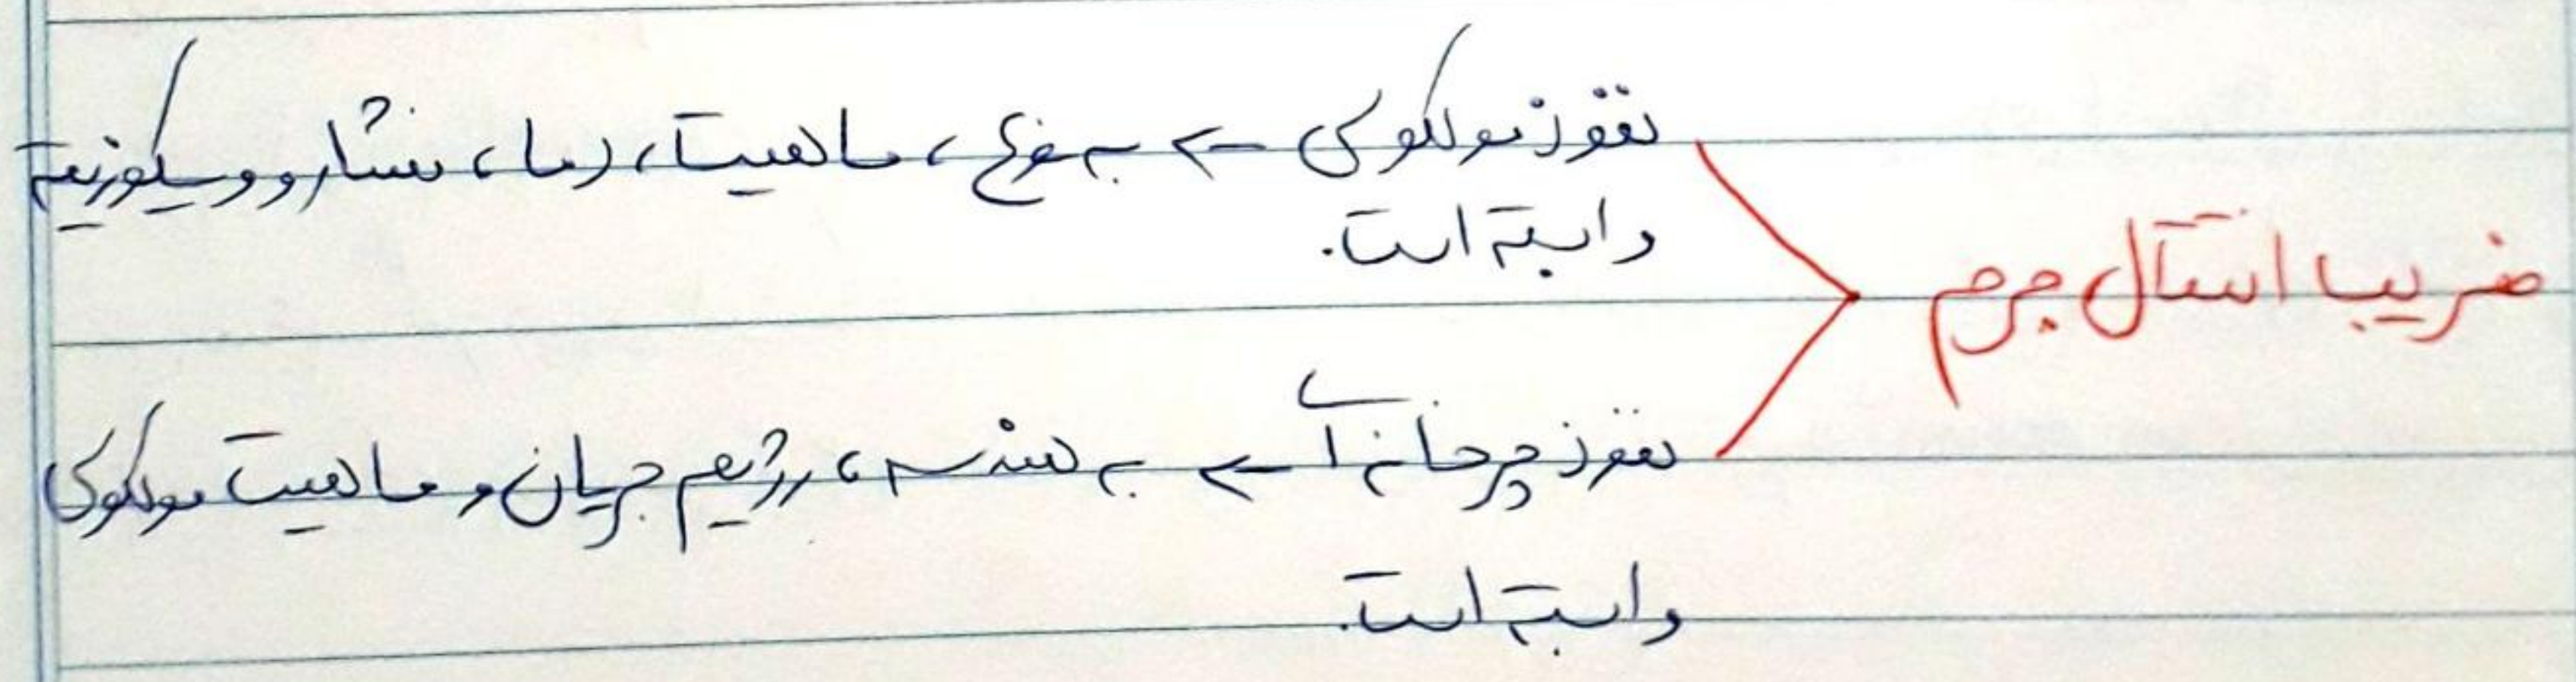 ضریب انتقال جرم
نفوذ مولکولی ← به نوع، ماهیت، دما، فشار و ویسکوزیته
وابسته است.
نفوذ چرخانه‌ای ← به هندسه، رژیم جریان و ماهیت مولکولی
وابسته است.